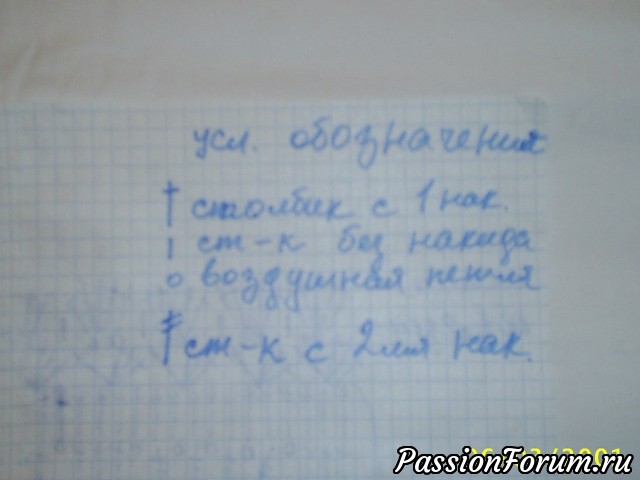 усл. обозначения
† столбик с 1 нак.
ı ст-к без накида
о воздушная петля
ǂ ст-к с 2мя нак.
PassionForum.ru